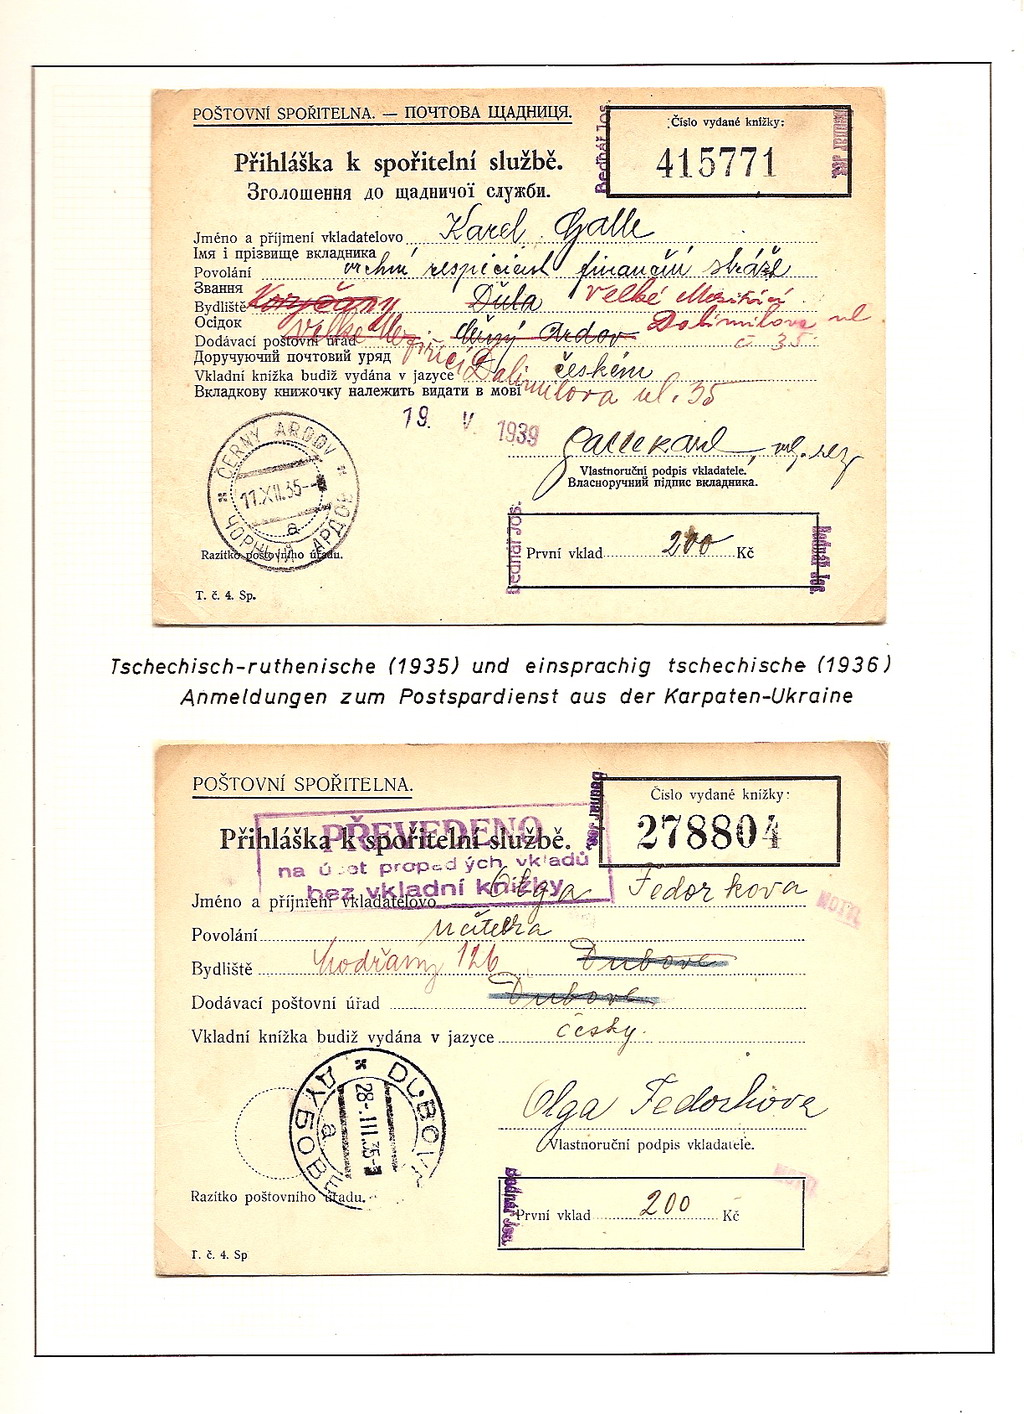 POŠTOVNÍ SPOŘITELNA. — ПОЧТОВА ЩАДНИЦЯ.
Číslo vydané knížky:
415771
Bednář Jos.
Bednář Jos.
Přihláška k spořitelní službě.
Зголошення до щадничої служби.
Jméno a příjmení vkladatelovo Karel Galle
Імя і прізвище вкладника
Povolání vrchní respicient finanční stráže
Звання
Bydliště Koryčany Velké Meziříčí
Осідок Dalimilova ul
Dodávací poštovní úřad Velké Meziříčí Černý Ardov č 35
Доручуючий почтовий уряд
Vkladní knížka budiž vydána v jazyce českém
Dalimilova ul. 35
Вкладкову книжочку належить видати в мові
19. V 1939
ČERNÝ ARDOV
11.XII.35
a
ЧОРНЫЙ АРДОВ
Galle Karel
Vlastnoruční podpis vkladatele.
Власноручний підпис вкладника.
Razítko poštovního úřadu.
Bednář Jos.
První vklad 200 Kč
Bednář Jos.
T. č. 4. Sp.
Tschechisch-ruthenische (1935) und einsprachig tschechische (1936)
Anmeldungen zum Postspardienst aus der Karpaten-Ukraine
POŠTOVNÍ SPOŘITELNA.
Bednář Jos.
Číslo vydané knížky:
278804
PŘEVEDENO
Přihláška k spořitelní službě.
na účet propadých vkladů
bez vkladní knížky
Jméno a příjmení vkladatelovo Olga Fedorkova
Povolání učitelka
Bydliště Modřany 126 Dubove
Dodávací poštovní úřad Dubove
Vkladní knížka budiž vydána v jazyce česky.
DUBOVE
28.III.35
a
ДУБОВЕ
Olga Fedorkova
Vlastnoruční podpis vkladatele.
Razítko poštovního úřadu.
Bednář Jos.
První vklad 200 Kč
T. č. 4. Sp